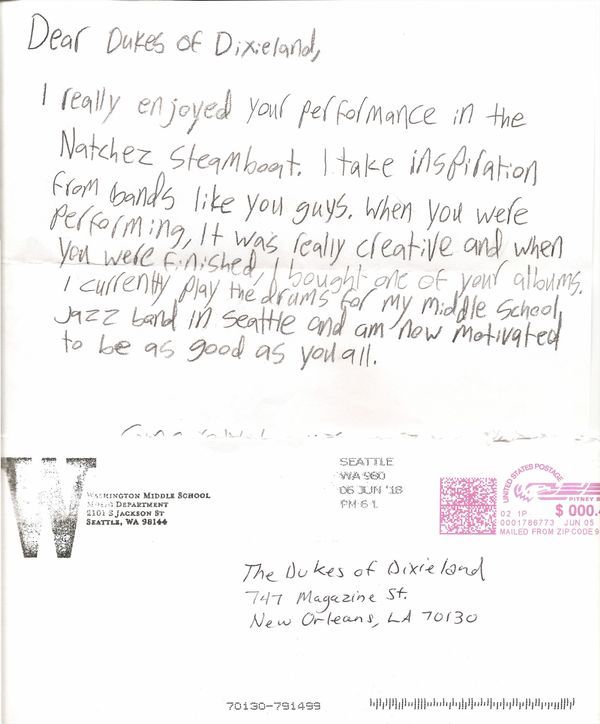 Dear Dukes of Dixieland,
I really enjoyed your performance in the
Natchez Steamboat. I take inspiration
from bands like you guys. When you were
performing, It was really creative and when
you were finished, I bought one of your albums.
I currently play the drums for my middle school
Jazz band in seattle and am now motivated
to be as good as you all.
W
WASHINGTON MIDDLE SCHOOL
MUSIC DEPARTMENT
2101 S JACKSON ST
SEATTLE, WA 98144
SEATTLE
WA 980
06 JUN '18
PM 6 L
UNITED STATES POSTAGE
PITNEY B
02 1P
$ 000.
0001786773 JUN 05
MAILED FROM ZIP CODE 9
The Dukes of Dixieland
747 Magazine St.
New Orleans, LA 70130
70130-791499